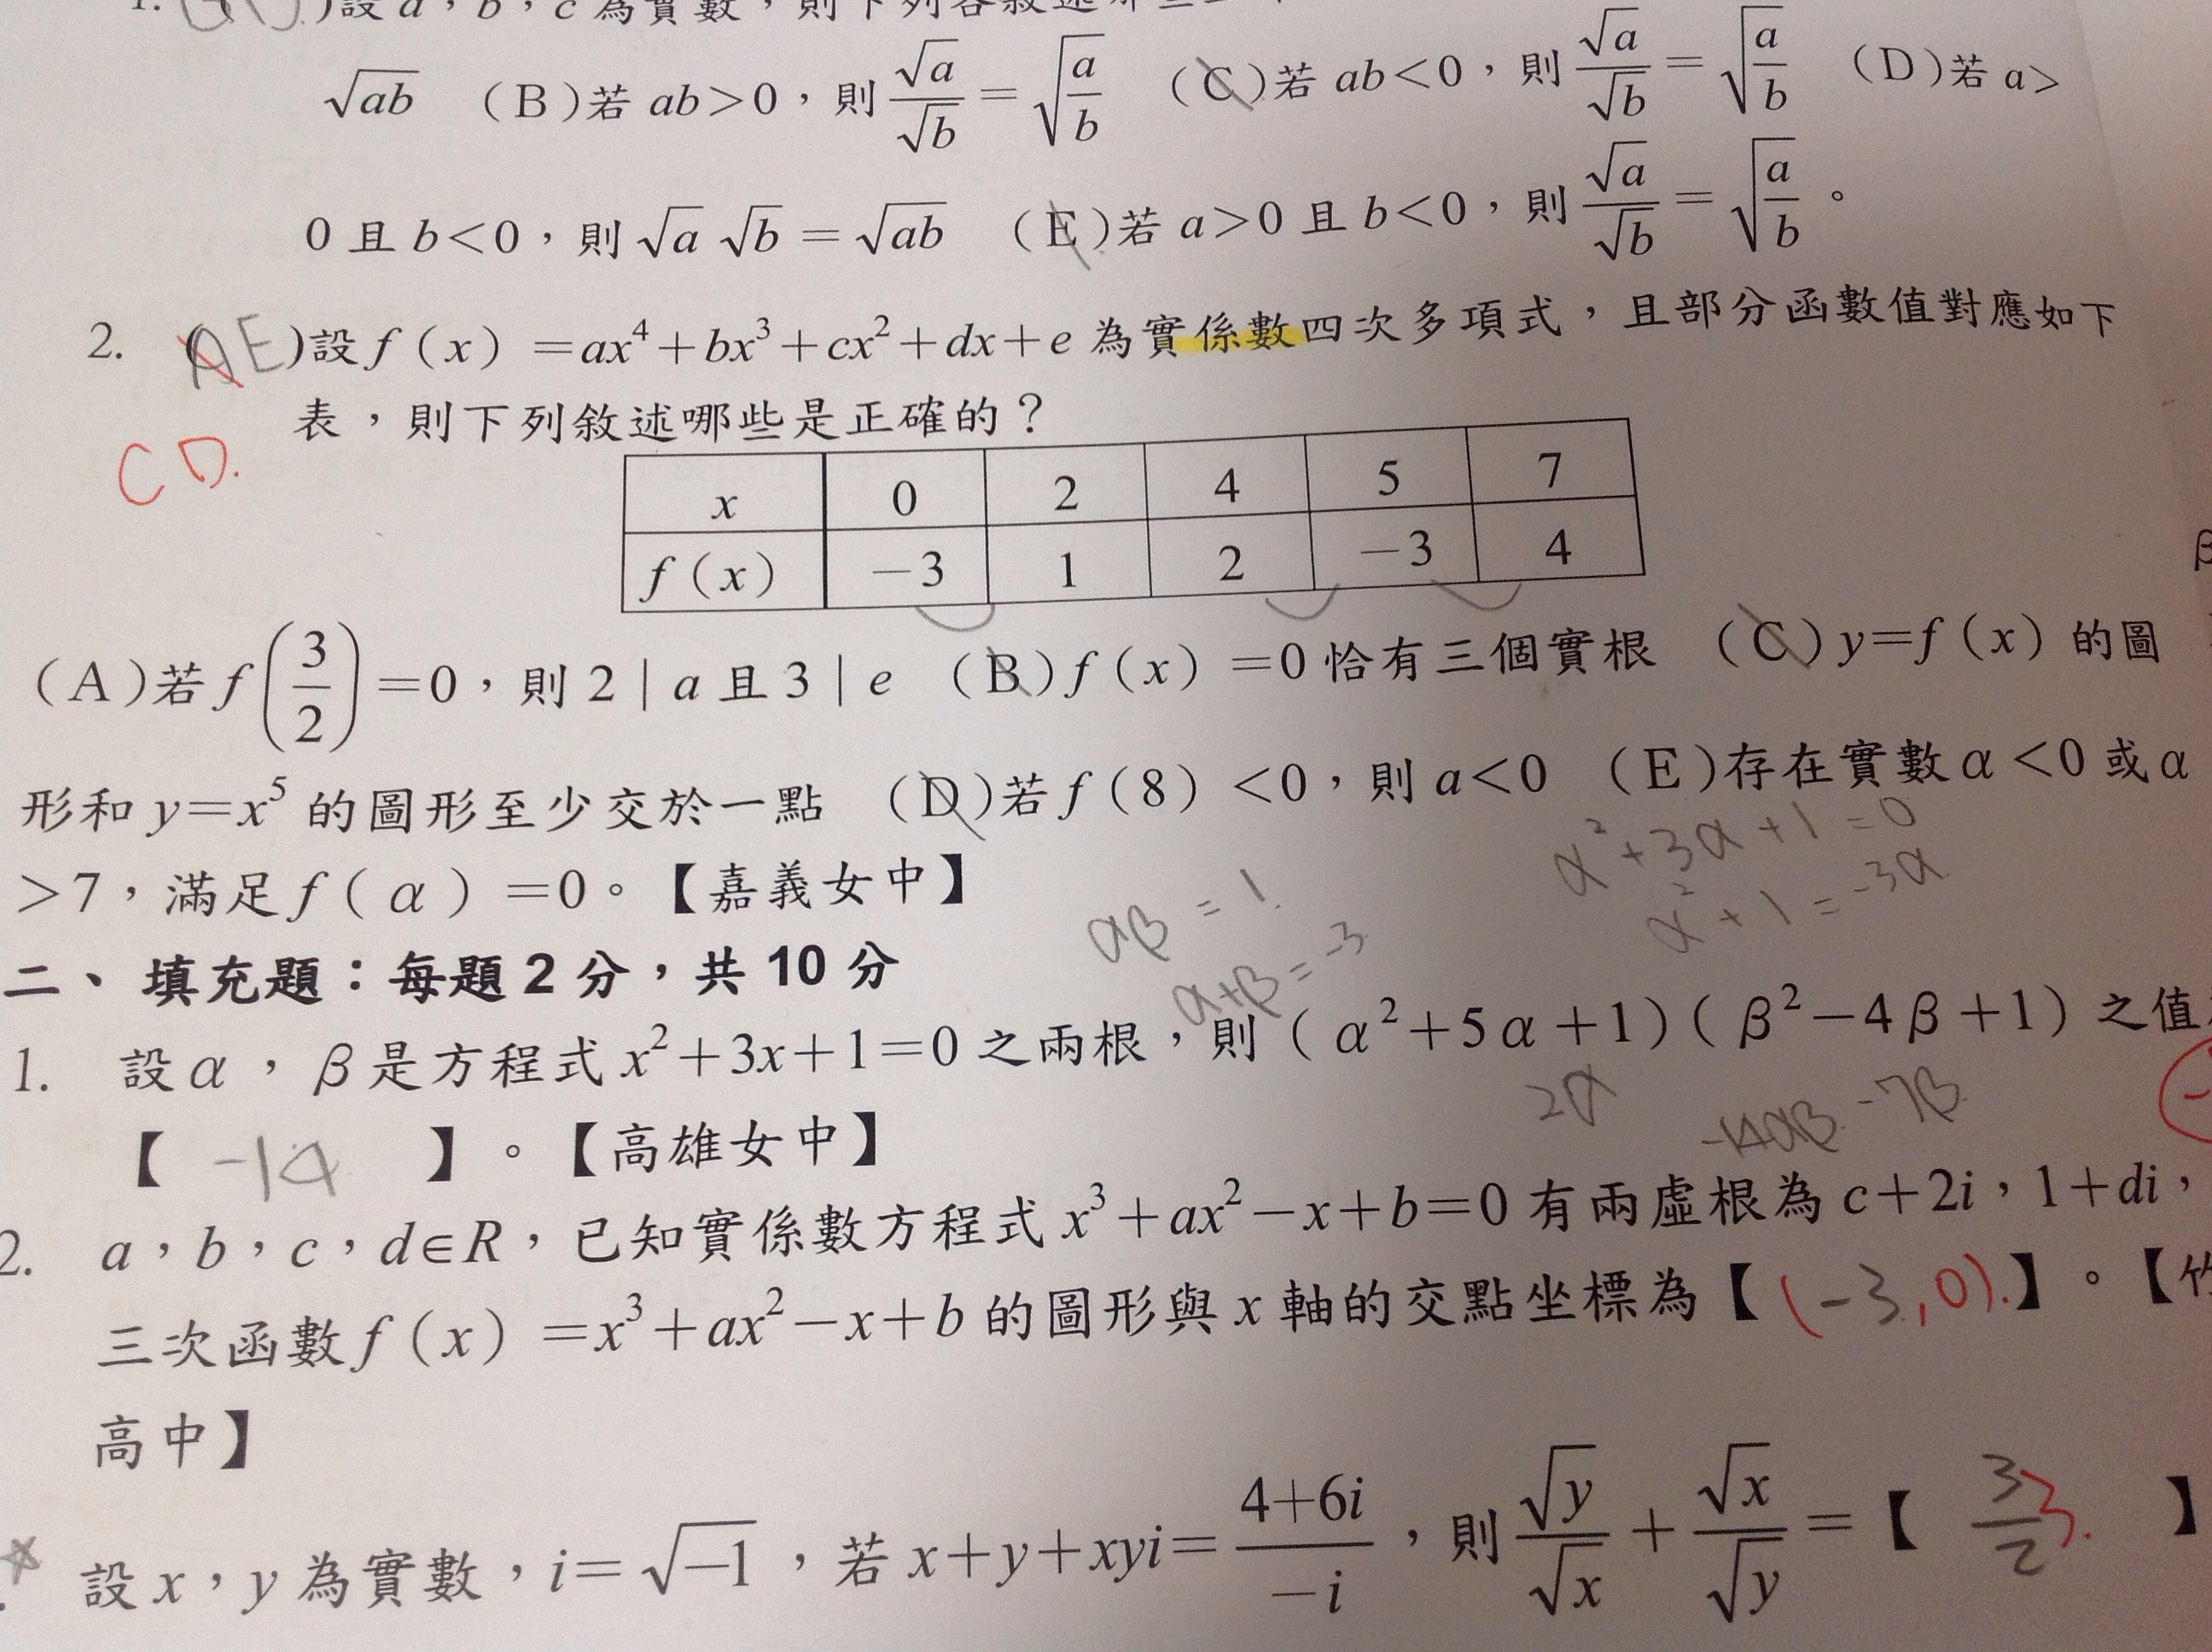 1. )設 a，b，c 為實數，則下列各敘述哪些
√ab (B)若 ab>0，則 √a/√b = √(a/b) (C)若 ab<0，則 √a/√b = √(a/b) (D)若 a>
0 且 b<0，則 √a √b = √ab (E)若 a>0 且 b<0，則 √a/√b = √(a/b)。
2. (AE)設 f(x)=ax⁴+bx³+cx²+dx+e 為實係數四次多項式，且部分函數值對應如下
表，則下列敘述哪些是正確的？
CD.
x 0 2 4 5 7
f(x) −3 1 2 −3 4
(A)若 f(3/2)=0，則 2｜a 且 3｜e (B) f(x)=0 恰有三個實根 (C) y=f(x) 的圖
形和 y=x⁵ 的圖形至少交於一點 (D)若 f(8)<0，則 a<0 (E)存在實數 α<0 或 α
>7，滿足 f(α)=0。【嘉義女中】
α²+3α+1=0
α²+1=-3α
αβ=1.
α+β=-3
二、填充題：每題 2 分，共 10 分
1. 設 α，β 是方程式 x²+3x+1=0 之兩根，則(α²+5α+1)(β²−4β+1)之值
2α -14αβ -7β
【 -14 】。【高雄女中】
2. a，b，c，d∈R，已知實係數方程式 x³+ax²−x+b=0 有兩虛根為 c+2i，1+di，
三次函數 f(x)=x³+ax²−x+b 的圖形與 x 軸的交點坐標為【(-3,0).】。【竹
高中】
設 x，y 為實數，i=√−1，若 x+y+xyi=(4+6i)/(−i)，則 √y/√x + √x/√y =【 3/2 3. 】
β